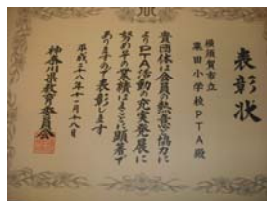 表彰状
横須賀市立
粟田小学校PTA殿
貴団体は会員の熱意と協力に
よりPTA活動の充実発展に
努めその業績はまことに顕著で
ありますので表彰します
平成二十八年十一月十八日
神奈川県教育委員会